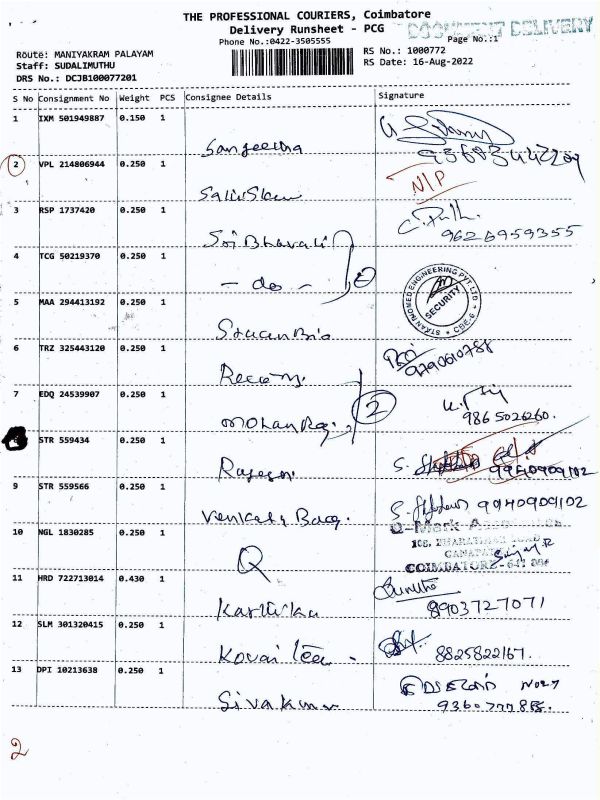 THE PROFESSIONAL COURIERS, Coimbatore
Delivery Runsheet - PCG
DOCUMENT DELIVERY
Phone No.:0422-3505555
Page No.:1
Route: MANIYAKRAM PALAYAM
RS No.: 1000772
Staff: SUDALIMUTHU
RS Date: 16-Aug-2022
DRS No.: DCJB100077201
S No Consignment No Weight PCS Consignee Details Signature
1 IXM 501949887 0.150 1
Sangeetha
2 VPL 214806944 0.250 1
N/P
3 RSP 1737420 0.250 1
Sri Bhavani
9626959355
4 TCG 50219370 0.250 1
- do -
5 MAA 294413192 0.250 1
ENGINEERING PVT. LTD
SECURITY
CBE-6
6 TRZ 325443120 0.250 1
9790610788
7 EDQ 24539907 0.250 1
Mohan Raj
2
9865026260.
STR 559434 0.250 1
Rajesh
9940909102
9 STR 559566 0.250 1
9940909102
10 NGL 1830285 0.250 1
Q
Q-Mark
COIMBATORE - 641 006
11 HRD 722713014 0.430 1
Karthika
8903727071
12 SLM 301320415 0.250 1
Kovai Tea -
8825822167.
13 DPI 10213638 0.250 1
Sivakumar
2